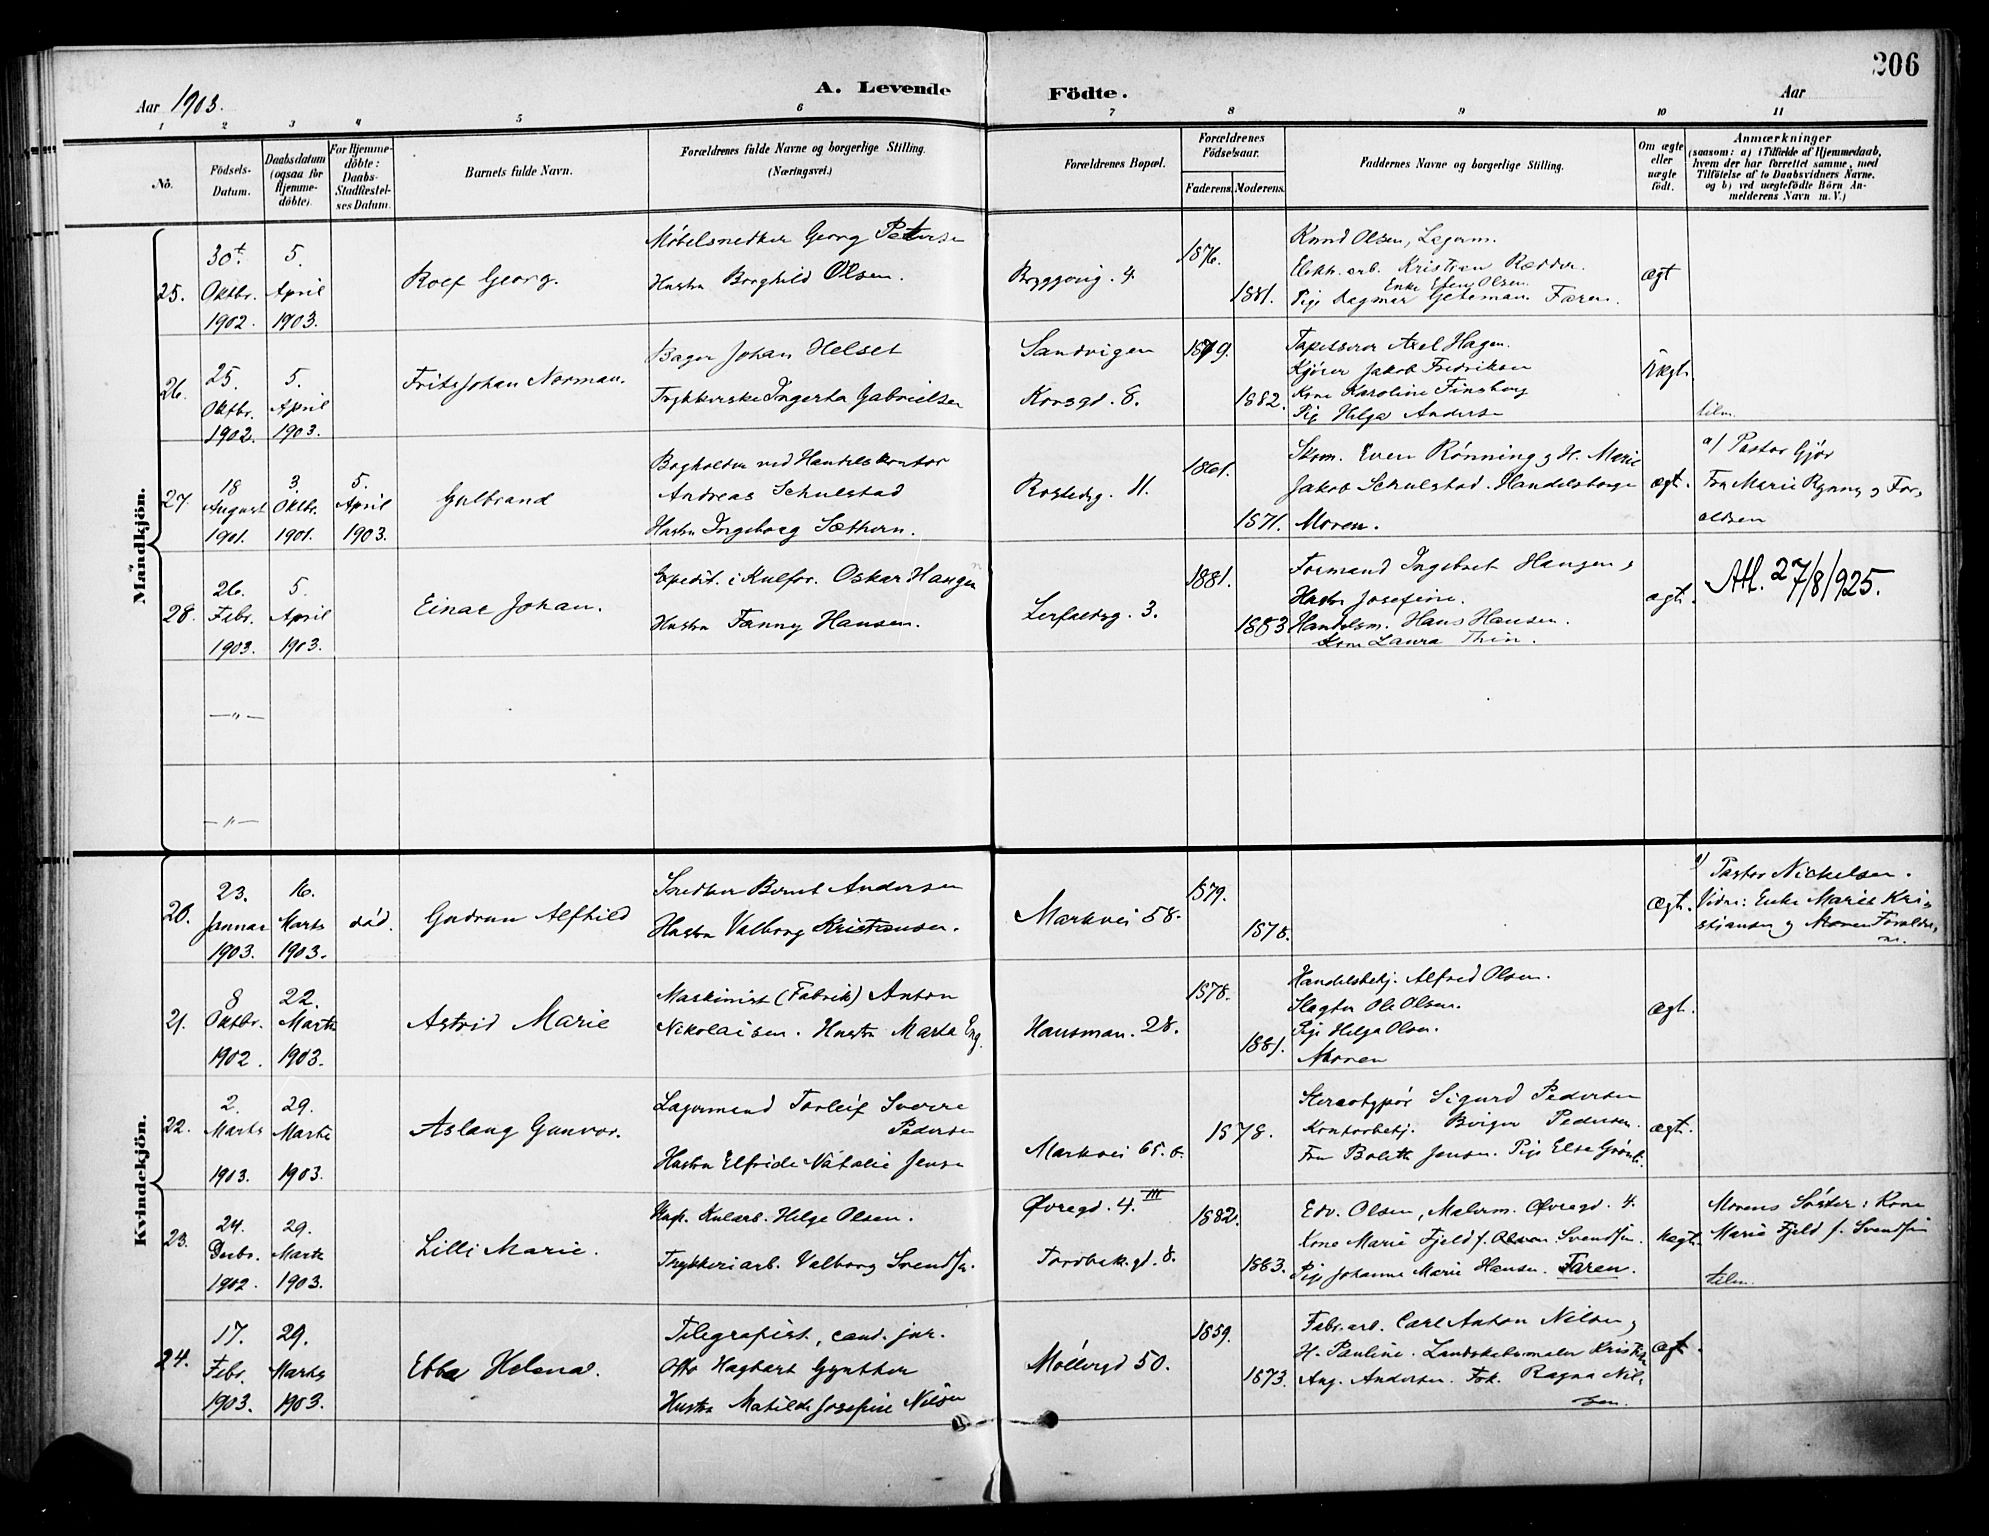 206
Aar 1903.
A. Levende Födte.
Aar
1 2 3 4 5 6 7 8 9 10 11
No.
Födsels-Datum.
Daabsdatum (ogsaa for Hjemme-döbte).
For Hjemme-döbte: Daabs-Stadfæstel-ses Datum.
Barnets fulde Navn.
Forældrenes fulde Navne og borgerlige Stilling.
(Næringsvei.)
Forældrenes Bopæl.
Forældrenes Födselsaar.
Faderens. Moderens.
Faddernes Navne og borgerlige Stilling.
Om ægte eller uægte født.
Anmærkninger
(saasom: a) i Tilfælde af Hjemmedaab,
hvem der har forrettet samme, med
Tilföielse af to Daabsvidners Navne.
og b) ved uægtefödte Börn An-
melderens Navn m. V.)
Mandkjön.
25.
30te Oktbr. 1902.
5. April 1903.
Rolf Georg.
Møbelsnedker Georg Petersen
Hustru Borghild Olsen.
Bryggerig. 4.
1876.
1881.
Knud Olsen, Lagerm.
Elektr. arb. Kristian Rædder.
Enke Ellen Olsen
Pige Dagmar Faren.
ægt
26.
25. Oktbr. 1902.
5. April 1903.
Frits Johan Norman.
Bager Johan Helset
Trykkerske Ingerta Gabrielsen
Sandvigen
Korsgd. 8.
1879.
1882.
Tapetserer Axel Hagen.
Kjører Jakob Fredriksen
Kone Karoline Finsberg
Pige Helga Andersen
Uægt.
tilm.
27.
18 August 1901.
3 Oktbr. 1901.
5. April 1903.
Gulbrand
Bogholder ved Handelskontor
Andreas Schulstad
Hustru Ingeborg Sæthern.
Rostedsg. 11.
1861.
1871.
Skom. Even Rønning og H. Marie
Jakob Schulstad. Handelsborger
Moren.
ægt.
a) Pastor Gjør
Fru Marie Ryning og For-
ældren
28.
26. Febr. 1903.
5. April 1903.
Einar Johan.
Expedit. i Kulfor. Oskar Haugen
Hustru Fanny Hansen.
Lerfaldsg. 3.
1881.
1883
Formand Ingebret Haugen og
Hustru Josefine.
Handelsm. Hans Hansen.
Kone Laura Thin.
ægt.
Att. 27/8/1925.
—"—
—"—
Kvindekjön.
20.
23. Januar 1903.
16. Marts 1903.
død.
Gudrun Alfhild
Snedker Bernt Andersen
Hustru Valborg Kristiansen.
Markvei 58.
1879.
1878.
Ægt.
a) Pastor Nickelsen.
Vidne: Enke Marie Kri-
stiansen og Moren Forældre-
ne.
21.
8 Oktbr. 1902.
22. Marts 1903.
Astrid Marie
Maskinist (Fabrik) Anton
Nikolaisen. Hustru Marta Eng.
Hausman. 28.
1878.
1881.
Handelsbetj. Alfred Olsen.
Slagter Ole Olsen.
Pige Helga Olsen.
Moren
ægt.
22.
2. Marts 1903.
29. Marts 1903.
Aslaug Gunvor.
Lagermand Torleif Sverre
Pedersen
Hustru Elfride Natalie Jensen
Markvei 65. b.
1878.
Stereotypør Sigurd Pedersen
Kontorbetj. Birger Pedersen.
Fru Bolette Jensen. Pige Else Grønli.
ægt.
23.
24. Decbr. 1902.
29. Marts 1903.
Lilli Marie.
Ugift. Kularb. Helge Olsen.
Trykkeriarb. Valborg Svendsen.
Øvregd. 4. III
Tordbak. gd. 8.
1882.
1883.
Edv. Olsen, Malerm. Øvregd. 4.
Kone Marie Fjeld f. Svendsen.
Pige Johanne Marie Hansen. Faren.
Uægt.
Morens Søster: Kone
Marie Fjeld f. Svendsen
tilm.
24.
17. Febr. 1903.
29. Marts 1903.
Ebba Helena.
Telegrafist, cand. jur.
Otto Hagbart Gynther
Hustru Matilde Josefine Nilsen
Møllergd 50.
1859.
1873.
Fabr. arb. Carl Anton Nilsen og
H. Pauline. Landskabsmaler Kristian
Aug. Andersen. Frk. Ragna Nil-
sen.
ægt.